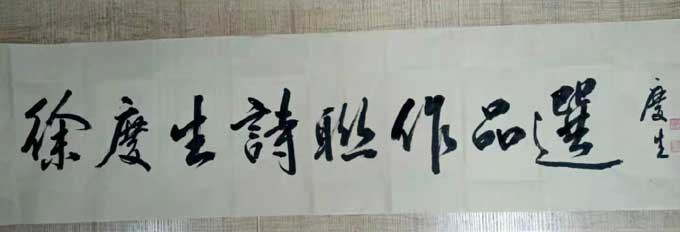 徐度生詩聯作品選
度生